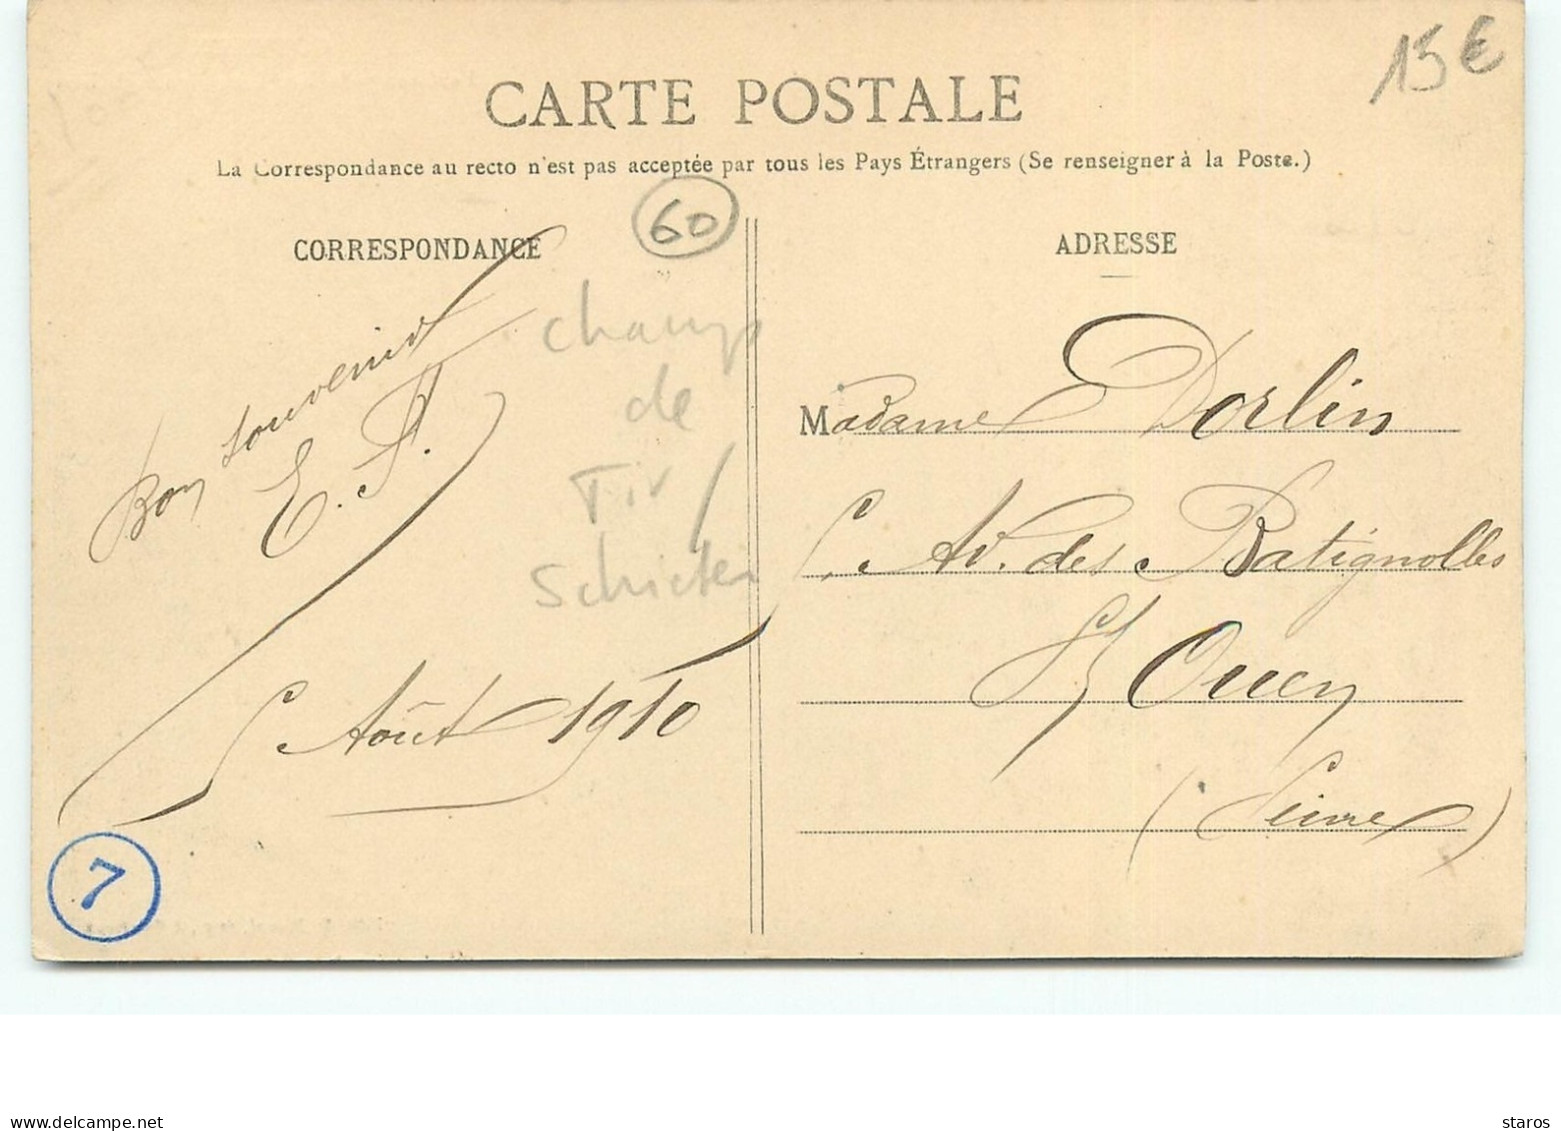 15 €
CARTE POSTALE
La Correspondance au recto n'est pas acceptée par tous les Pays Étrangers (Se renseigner à la Poste.)
60
CORRESPONDANCE
Bon souvenir
champ
de
Tir /
7
Août 1910
ADRESSE
Madame Dorlin
Av. des Batignolles
St Ouen
(Seine)
www.delcampe.net
staros